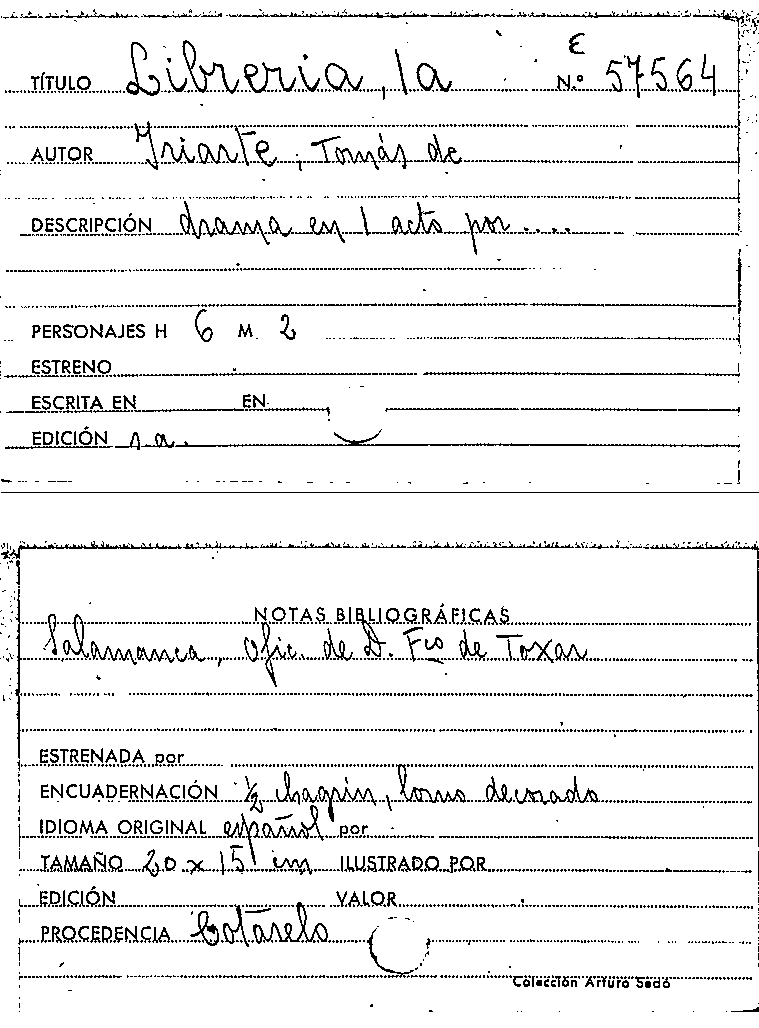 E
TÍTULO Libreria, la N.º 57564
AUTOR Yriarte, Tomás de
DESCRIPCIÓN drama en 1 acto por....
PERSONAJES H 6 M. 2
ESTRENO
ESCRITA EN EN
EDICIÓN s.a.
NOTAS BIBLIOGRÁFICAS
Salamanca, ofic. de D. Fco de Toxar
ESTRENADA por
ENCUADERNACIÓN ½ chagrin, lomo decorado
IDIOMA ORIGINAL español por
TAMAÑO 20 x 15 cm ILUSTRADO POR
EDICIÓN VALOR
PROCEDENCIA Cotarelo
Colección Arturo Sedó